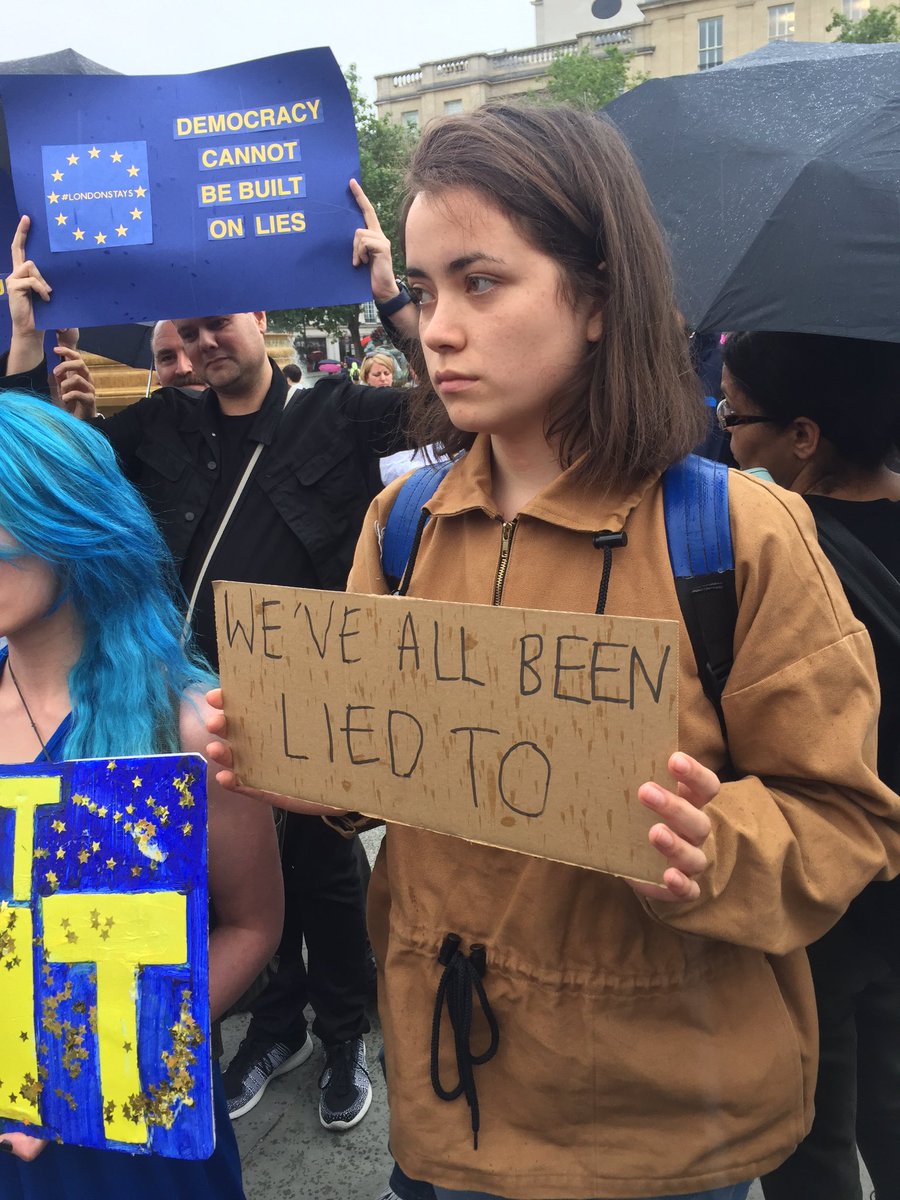 DEMOCRACY
CANNOT
BE BUILT
ON LIES
#LONDONSTAYS
WE'VE ALL BEEN
LIED TO
T
IT